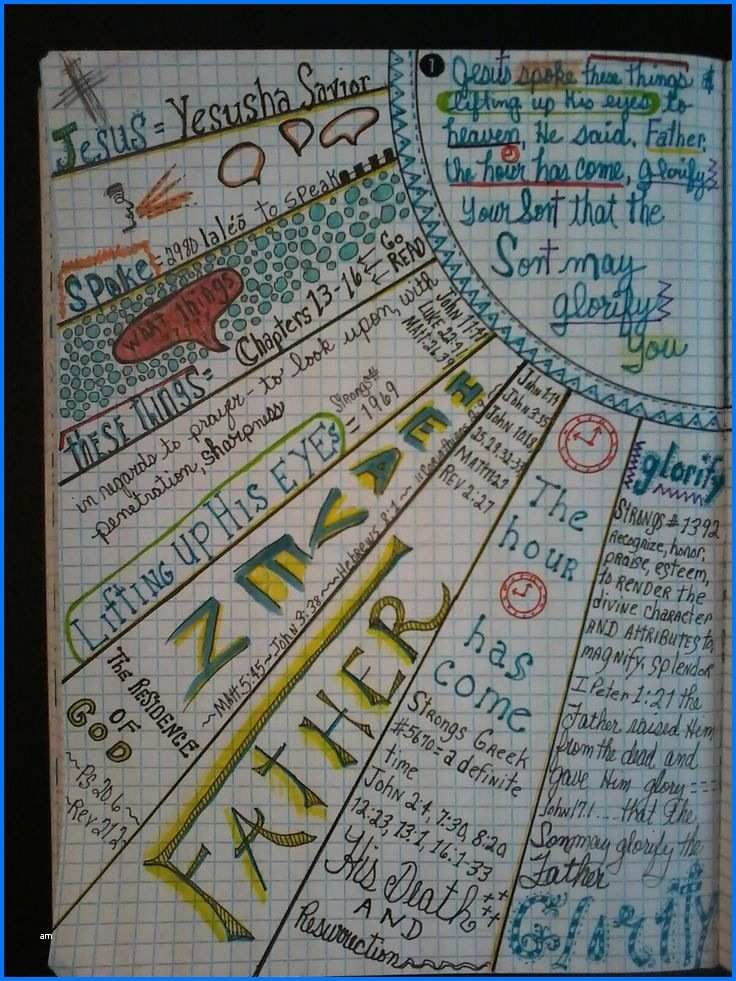 1
Jesus spoke these things &
lifting up His eyes to
heaven, He said. Father,
the hour has come, glorify
Your Son that the
Son may
glorify
You
Jesus = Yesusha Savior
Spoke = 2980 laleo to speak
What Things
These Things = Chapters 13-16 ← Go
← READ
Lifting up His Eyes
Strongs#
= 1969
in regards to prayer - to look upon, with
penetration, sharpness
John 17:1
Luke 22:9
HEAVEN
The Residence
OF
GOD
~Ps 20:6~
~Matt 5:45~John 3:38~~Hebrews 8:1~
FATHER
John 1:14
John 3:35
John 10:18
25.29.32.33
Rev 2:27
The
hour
has
come
Strongs Greek
#5670= a definite
time
John 2:4, 7:30, 8:20
12:23, 13:1, 16:1-33
His Death
AND
Resurrection
glorify
Strongs # 1392
Recognize, honor,
praise, esteem,
to render the
divine character
AND Attributes to,
magnify, splendor
I Peter 1:21 the
Father raised Him
from the dead and
gave Him glory
John 17:1....that the
Son may glorify the
Father
Glorify
am